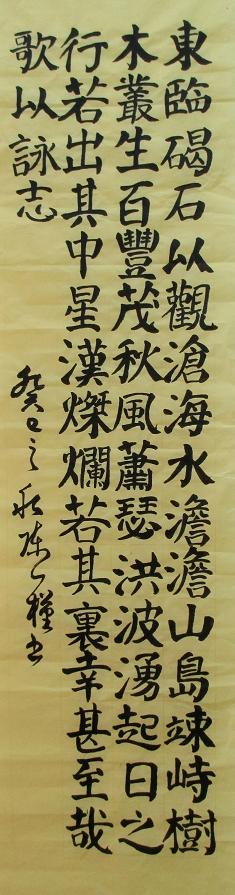 東臨碣石以觀滄海水澹澹山島竦峙樹
木叢生百豐茂秋風蕭瑟洪波湧起日之
行若出其中星漢燦爛若其裏幸甚至哉
歌以詠志
癸巳之秋陈书